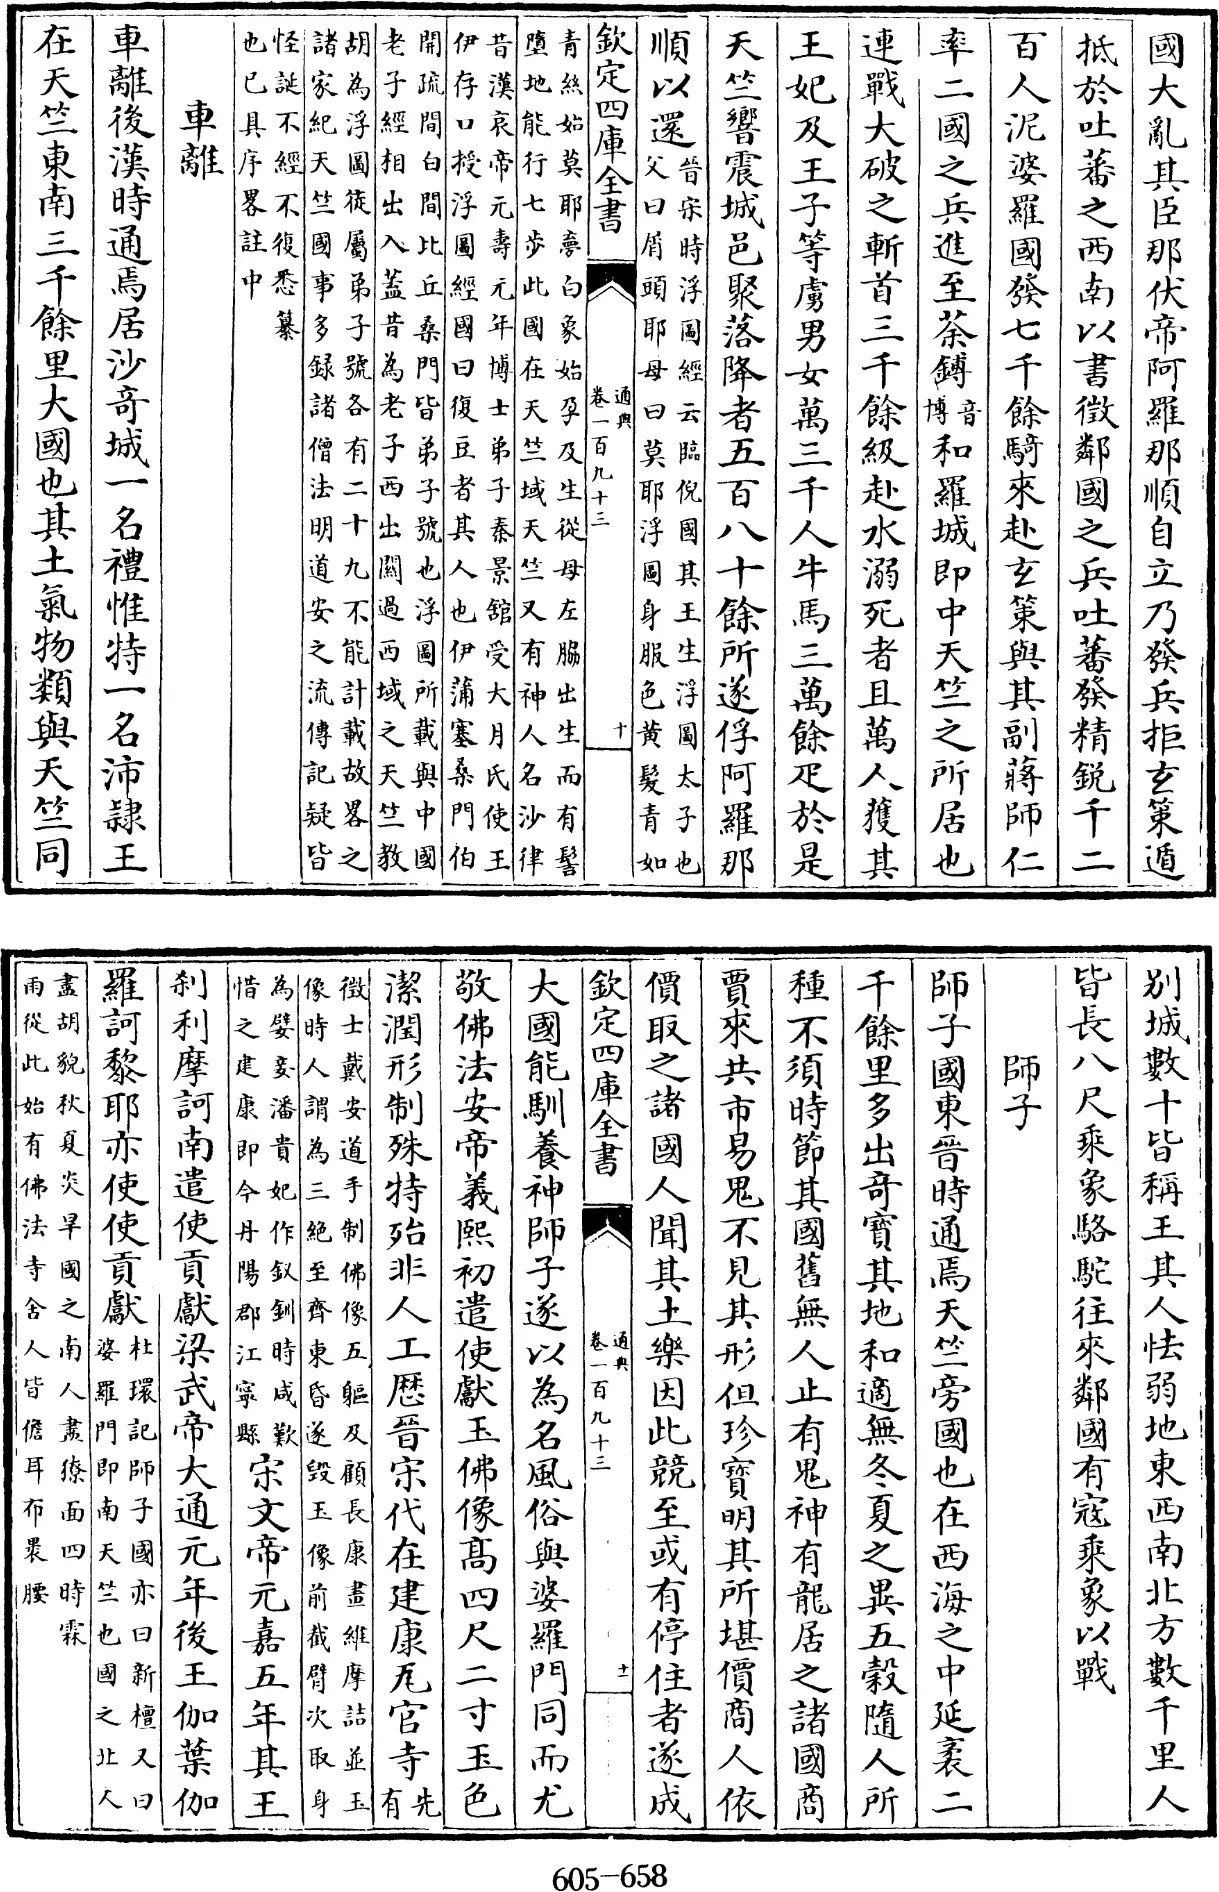 國大亂其臣那伏帝阿羅那順自立乃發兵拒玄策遁
抵於吐蕃之西南以書徵鄰國之兵吐蕃發精銳千二
百人泥婆羅國發七千餘騎來赴玄策與其副蔣師仁
率二國之兵進至茶鎛音博和羅城即中天竺之所居也
連戰大破之斬首三千餘級赴水溺死者且萬人獲其
王妃及王子等虜男女萬三千人牛馬三萬餘疋於是
天竺響震城邑聚落降者五百八十餘所遂俘阿羅那
順以還晉宋時浮圖經云臨倪國其王生浮圖太子也
父曰屑頭耶母曰莫耶浮圖身服色黃髮青如
欽定四庫全書
通典
卷一百九十三
十
青絲始莫耶夢白象始孕及生從母左脇出生而有髻
墮地能行七步此國在天竺域天竺又有神人名沙律
昔漢哀帝元壽元年博士弟子秦景館受大月氏使王
伊存口授浮圖經國曰復豆者其人也伊蒲塞桑門伯
開疏間白間比丘桑門皆弟子號也浮圖所載與中國
老子經相出入蓋昔為老子西出關過西域之天竺教
胡為浮圖徒屬弟子號各有二十九不能計載故畧之
諸家紀天竺國事多録諸僧法明道安之流傳記疑皆
怪誕不經不復悉纂
也已具序畧註中
車離
車離後漢時通焉居沙奇城一名禮惟特一名沛隷王
在天竺東南三千餘里大國也其土氣物類與天竺同
别城數十皆稱王其人怯弱地東西南北方數千里人
皆長八尺乘象駱駝往來鄰國有寇乘象以戰
師子
師子國東晉時通焉天竺旁國也在西海之中延袤二
千餘里多出奇寶其地和適無冬夏之異五穀隨人所
種不須時節其國舊無人止有鬼神有龍居之諸國商
賈來共市易鬼不見其形但珍寶明其所堪價商人依
價取之諸國人聞其土樂因此競至或有停住者遂成
欽定四庫全書
通典
卷一百九十三
十一
大國能馴養神師子遂以為名風俗與婆羅門同而尤
敬佛法安帝義熙初遣使獻玉佛像高四尺二寸玉色
潔潤形制殊特殆非人工歷晉宋代在建康瓦官寺先
有
徵士戴安道手制佛像五軀及顧長康畫維摩詰並玉
像時人謂為三絕至齊東昏遂毀玉像前截臂次取身
為嬖妾潘貴妃作釵釧時咸歎
惜之建康即今丹陽郡江寧縣宋文帝元嘉五年其王
刹利摩訶南遣使貢獻梁武帝大通元年後王伽葉伽
羅訶黎耶亦使使貢獻杜環記師子國亦曰新檀又曰
婆羅門即南天竺也國之北人
盡胡貌秋夏炎旱國之南人盡獠面四時霖
雨從此始有佛法寺舍人皆儋耳布裹腰
605-658